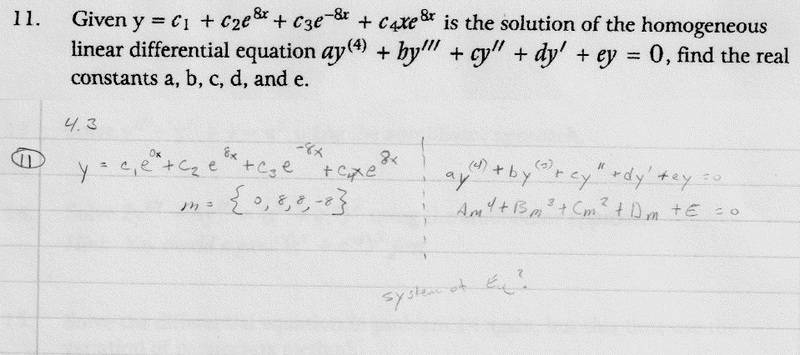 11. Given y = c₁ + c₂e⁸ˣ + c₃e⁻⁸ˣ + c₄xe⁸ˣ is the solution of the homogeneous
linear differential equation ay⁽⁴⁾ + by''' + cy'' + dy' + ey = 0, find the real
constants a, b, c, d, and e.
4.3
11 y = c₁e⁰ˣ + c₂e⁸ˣ + c₃e⁻⁸ˣ + c₄xe⁸ˣ
ay⁽⁴⁾ + by⁽³⁾ + cy'' + dy' + ey = 0
m = {0, 8, 8, -8}
Am⁴ + Bm³ + Cm² + Dm + E = 0
system of Eq?